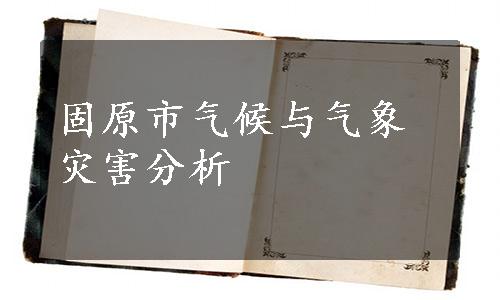 固原市气候与气象
灾害分析